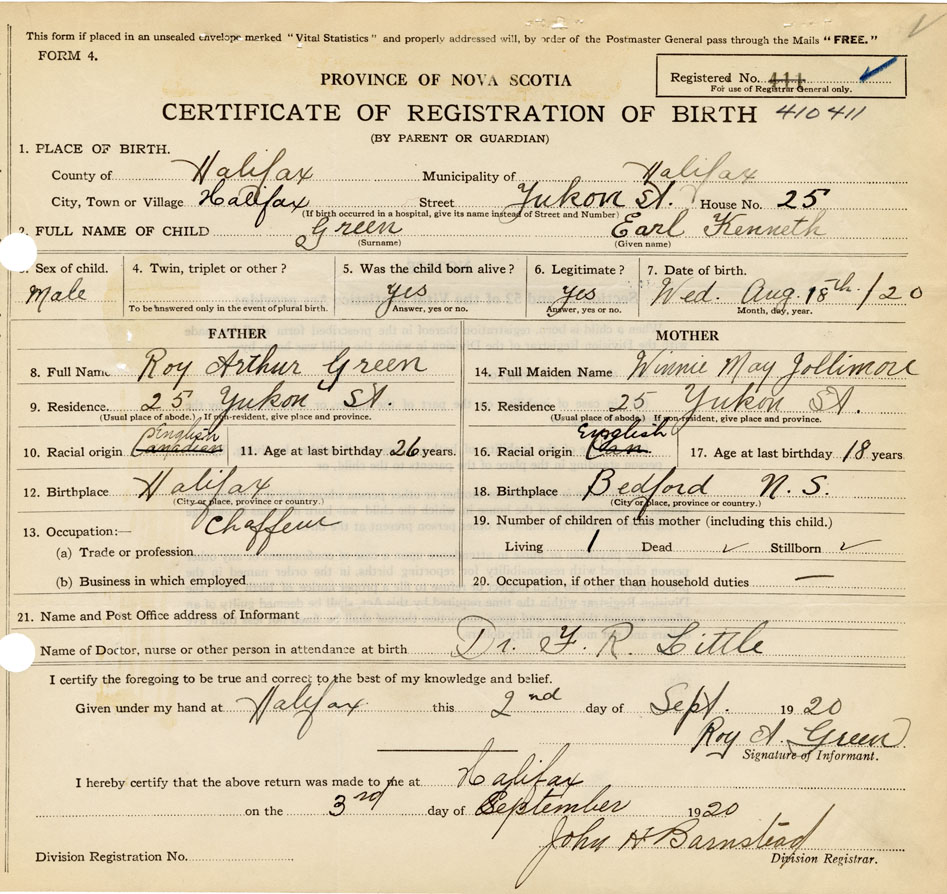 This form if placed in an unsealed envelope marked "Vital Statistics" and properly addressed will, by order of the Postmaster General pass through the Mails "FREE."
FORM 4.
PROVINCE OF NOVA SCOTIA
Registered No. 411
For use of Registrar General only.
CERTIFICATE OF REGISTRATION OF BIRTH 410411
(BY PARENT OR GUARDIAN)
1. PLACE OF BIRTH.
County of Halifax Municipality of Halifax
City, Town or Village Halifax Street Yukon St. House No. 25
(If birth occurred in a hospital, give its name instead of Street and Number)
2. FULL NAME OF CHILD Green Earl Kenneth
(Surname) (Given name)
3. Sex of child. 4. Twin, triplet or other? 5. Was the child born alive? 6. Legitimate? 7. Date of birth.
Male yes yes Wed. Aug. 18th /20
To be answered only in the event of plural birth. Answer, yes or no. Answer, yes or no. Month, day, year.
FATHER MOTHER
8. Full Name Roy Arthur Green 14. Full Maiden Name Winnie May Jollimore
9. Residence. 25 Yukon St. 15. Residence 25 Yukon St.
(Usual place of abode.) If non-resident, give place and province. (Usual place of abode.) If non-resident, give place and province.
English English
10. Racial origin Canadian 11. Age at last birthday 26 years. 16. Racial origin Can 17. Age at last birthday 18 years
12. Birthplace Halifax 18. Birthplace Bedford N. S.
(City or place, province or country.) (City or place, province or country.)
13. Occupation:— Chaffeur 19. Number of children of this mother (including this child.)
(a) Trade or profession Living 1 Dead ✓ Stillborn ✓
(b) Business in which employed 20. Occupation, if other than household duties —
21. Name and Post Office address of Informant
Name of Doctor, nurse or other person in attendance at birth Dr. F. R. Little
I certify the foregoing to be true and correct to the best of my knowledge and belief.
Given under my hand at Halifax this 2nd day of Sept. 1920
Roy A. Green
Signature of Informant.
I hereby certify that the above return was made to me at Halifax
on the 3rd day of September 1920
John H Barnstead
Division Registration No. Division Registrar.